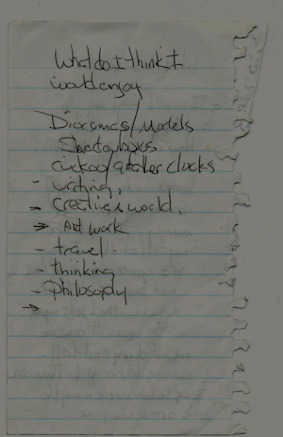 What do I think I
would enjoy
Dioramas/Models
Shadowboxes
cuckoo/other clocks
- writing,
→ creative world,
→ Art work
- travel
- thinking
- philosophy
→